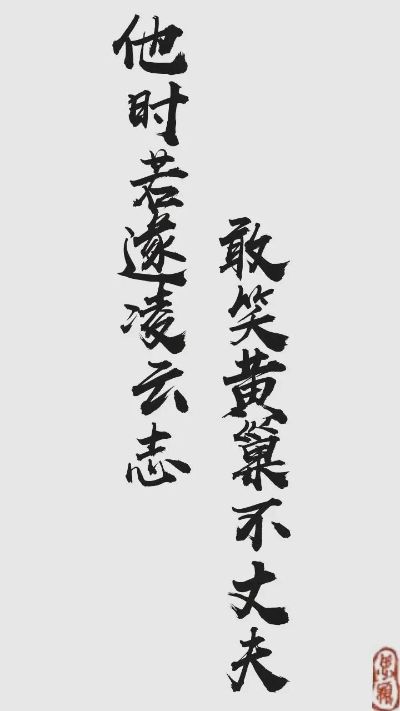 他时若遂凌云志
敢笑黄巢不丈夫